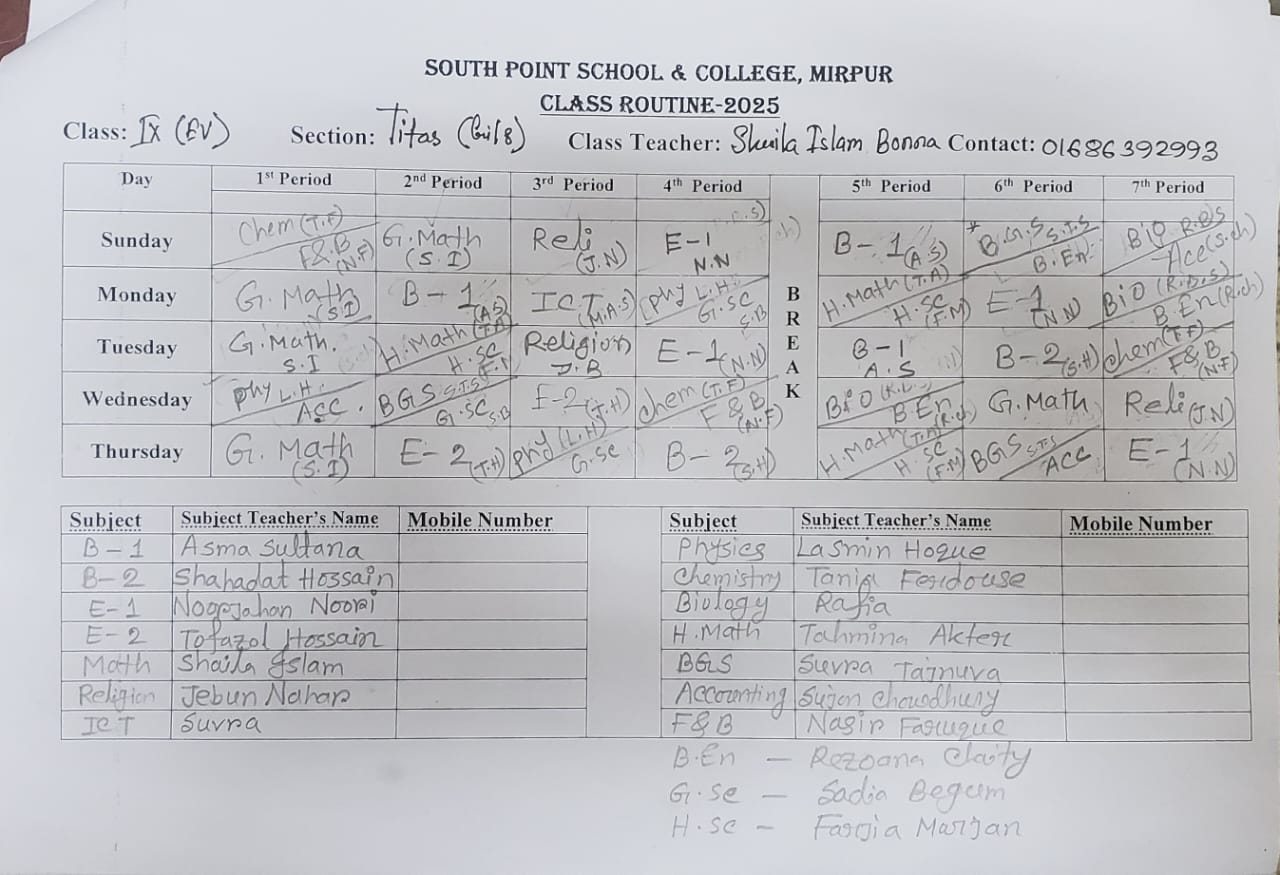 SOUTH POINT SCHOOL & COLLEGE, MIRPUR
CLASS ROUTINE-2025
Class: IX (EV) Section: Titas (Girls) Class Teacher: Shaila Islam Bonna Contact: 01686392993
Day 1st Period 2nd Period 3rd Period 4th Period BREAK 5th Period 6th Period 7th Period
Sunday Chem (T.F) F&B (N.F) G.Math (S.I) Reli (J.N) E-1 N.N B-1 (A.S) *B.G.S S.T.S B.En. Bio R.B/S Acc (S.ch)
Monday G. Math (S.I) B-1 (A.S) ICT (M.A.S) phy L.H. G.SC S.B H.Math (T.A) H.SC (F.M) E-1 (N.N) BiO (R.B.S) B.En (R.ch)
Tuesday G.Math. S.I H.Math (T.A) H.SC F.M Religion J.B E-1 (N.N) B-1 A.S B-2 (S.H) chem (T.F) F&B (N.F)
Wednesday phy L.H. ACC. BGS S.T.S G.SC S.B E-2 (T.H) chem (T.F) F&B (N.F) BiO B.En (R.ch) G.Math Reli (J.N)
Thursday G. Math (S.I) E-2 (T.H) phy (L.H) G.SC B-2 (S.H) H.Math (T.A) H.SC (F.M) BGS S.T.S ACC E-1 (N.N)
Subject Subject Teacher's Name Mobile Number Subject Subject Teacher's Name Mobile Number
B-1 Asma Sultana Physics Lasmin Hoque
B-2 Shahadat Hossain Chemistry Tania Ferdouse
E-1 Noorjahan Noori Biology Rafia
E-2 Tofazol Hossain H.Math Tahmina Akter
Math Shaila Islam BGS Suvra Tajnuva
Religion Jebun Nahar Accounting Sujon Chowdhury
ICT Suvra F&B Nasir Faruque
B.En — Rezoana Chaity
G.Sc — Sadia Begum
H.sc — Farjia Marjan